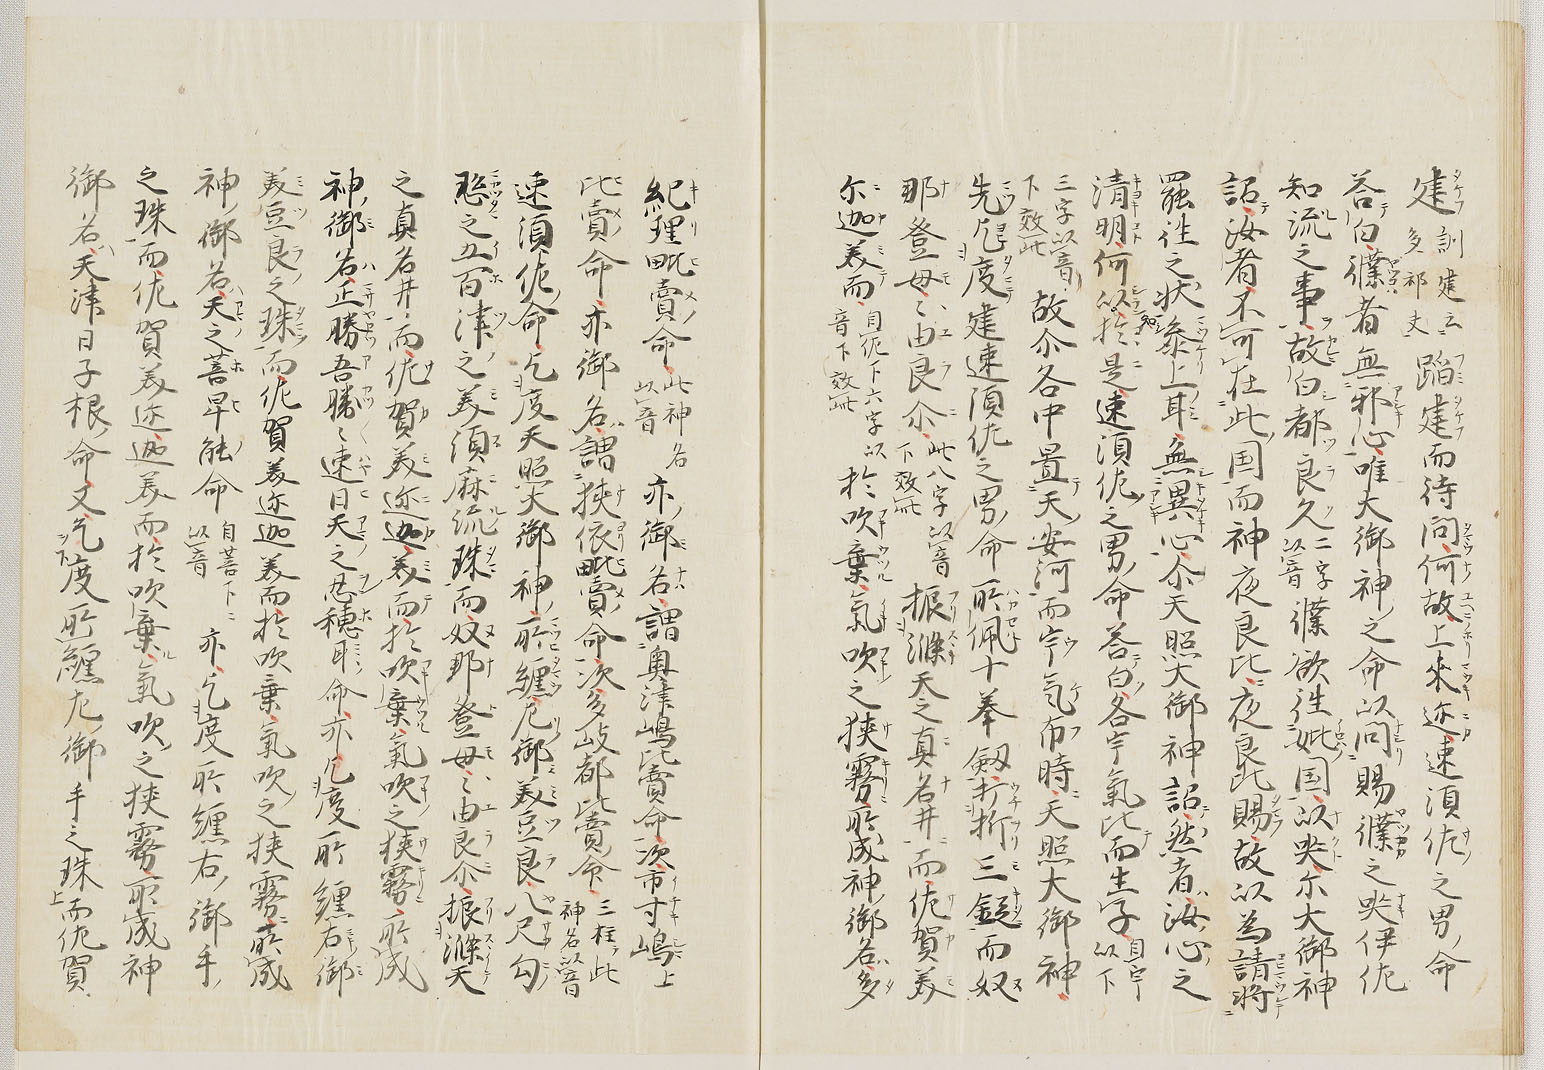 建訓建云多祁夫蹈建而待問何故上来迩速須佐之男命
荅白僕者無邪心唯大御神之命以問賜僕之哭伊佐
知流之事故白都良久二字以音僕欲往妣国以哭尓大御神
詔汝者不可在此国而神夜良比夜良比賜故以為請将
罷往之状参上耳無異心尓天照大御神詔然者汝心之
清明何以知於是速須佐之男命荅白各宇氣比而生子自宇以下
三字以音下效此故尓各中置天安河而宇氣布時天照大御神
先乞度建速須佐之男命所佩十拳劔打折三段而奴
那登母々由良尓此八字以音下效此振滌天之真名井而佐賀美
尓迦美而自佐下六字以音下效此於吹棄氣吹之狭霧所成神御名多
紀理毗賣命此神名以音亦御名謂奥津嶋比賣命次市寸嶋上
比賣命亦御名謂狭依毗賣命次多岐都比賣命三柱此神名以音
速須佐命乞度天照大御神所纏左御美豆良八尺勾
璁之五百津之美須麻流珠而奴那登母々由良尓振滌天
之真名井而佐賀美迩迦美而於吹棄氣吹之狭霧所成
神御名正勝吾勝々速日天之忍穂耳命亦乞度所纏右御
美豆良之珠而佐賀美迩迦美而於吹棄氣吹之狭霧所成
神御名天之菩卑能命自菩下三以音亦乞度所纏右御手
之珠而佐賀美迩迦美而於吹棄氣吹之狭霧所成神
御名天津日子根命又乞度所纏左御手之珠上而佐賀